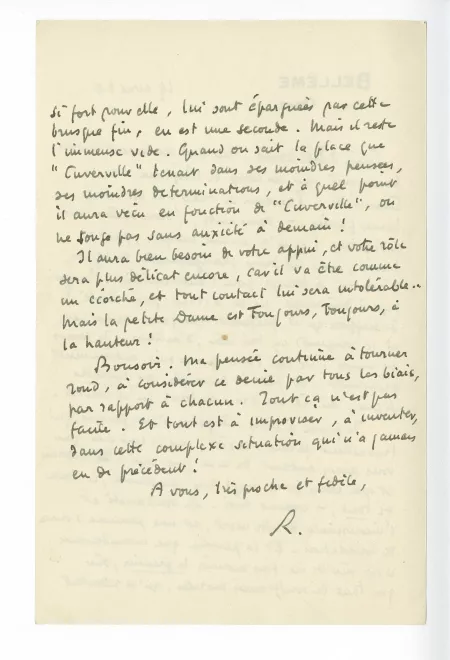 si fort pour elle, lui sont épargnées par cette
brusque fin, en est une seconde. Mais il reste
l'immense vide. Quand on sait la place que
"Cuverville" tenait dans ses moindres pensées,
ses moindres déterminations, et à quel point
il aura vécu en fonction de "Cuverville", on
ne songe pas sans anxiété à demain !
Il aura bien besoin de votre appui, et votre rôle
sera plus délicat encore, car il va être comme
un écorché, et tout contact lui sera intolérable..
Mais la petite Dame est Toujours, Toujours, à
la hauteur !
Bonsoir. Ma pensée continue à tourner
rond, à considérer ce deuil par tous les biais,
par rapport à chacun. Tout ça n'est pas
facile. Et tout est à improviser, à inventer,
dans cette complexe situation qui n'a jamais
eu de précédent !
A vous, très proche et fidèle,
R.